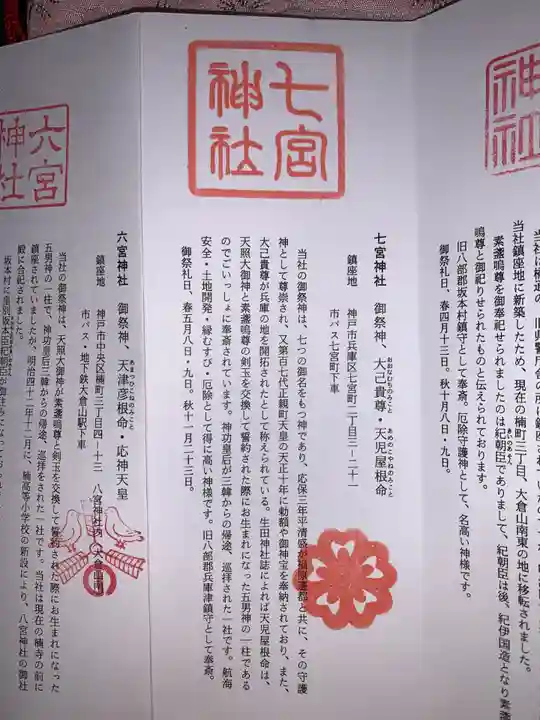 神社
当社鎮座地に新築したため、現在の楠町三丁目、大倉山南東の地に移転されました。
素盞嗚尊を御奉祀せられましたのは紀朝臣でありまして、紀朝臣は後、紀伊国造となり素盞
嗚尊と御祀りせられたものと伝えられております。
旧八部郡坂本村鎮守として奉斎。厄除守護神として、名高い神様です。
御祭礼日、春四月十三日。秋十月八日・九日。
七宮神社
七宮神社 御祭神、大己貴尊・天児屋根命
おおなむちのみこと あめのこやねのみこと
鎮座地 神戸市兵庫区七宮町二丁目三ー二十一
市バス七宮町下車
当社の御祭神は、七つの御名をもつ神であり、応保三年平清盛が福原遷都と共に、その守護
神として尊崇され、又第百七代正親町天皇の天正十年に勅額や御神宝を奉納されており、また、
大己貴尊が兵庫の地を開拓されたとして称えられている。生田神社誌によれば天児屋根命は、
天照大御神と素盞嗚尊の剣玉を交換して誓約された際にお生まれになった五男神の一柱である
のでごいっしょに奉斎されています。神功皇后が三韓からの帰途、巡拝された一社です。航海
安全・土地開発・縁むすび・厄除として得に高い神様です。旧八部郡兵庫津鎮守として奉斎。
御祭礼日、春五月八日・九日。秋十一月二十三日。
六宮神社
六宮神社 御祭神、天津彦根命・応神天皇
あまつひこねのみこと
鎮座地 神戸市中央区楠町三丁目四ー十三 八宮神社内(大倉山南)
市バス・地下鉄大倉山駅下車
当社の御祭神は、天照大御神が素盞嗚尊と剣玉を交換して誓約された際にお生まれになった
五男神の一柱で、神功皇后三韓からの帰途、巡拝をされた一社です。当社は現在の楠寺の前に
鎮座されていましたが、明治四十二年十二月に 楠高等小学校の新設により、八宮神社の御社
殿に合祀されました。